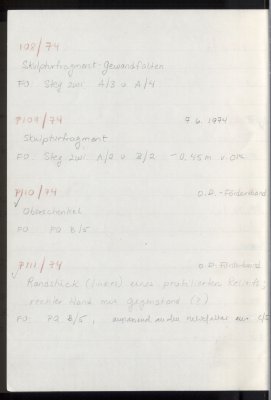 108/74
Skulpturfragment-Gewandfalten
FO: Steg zwi. A/3 u A/4
P109/74 7.6.1974
Skulpturfragment
FO: Steg zwi. A/2 u B/2 -0,45m v.
P110/74 O.D.-Förderband
Oberschenkel
FO: PQ B/5
P111/74 O.D. Förderband
Randstück (linkes) eines profilierten Reliefs;
rechte Hand mit Gegenstand (?)
FO: PQ B/5, anpassend an den